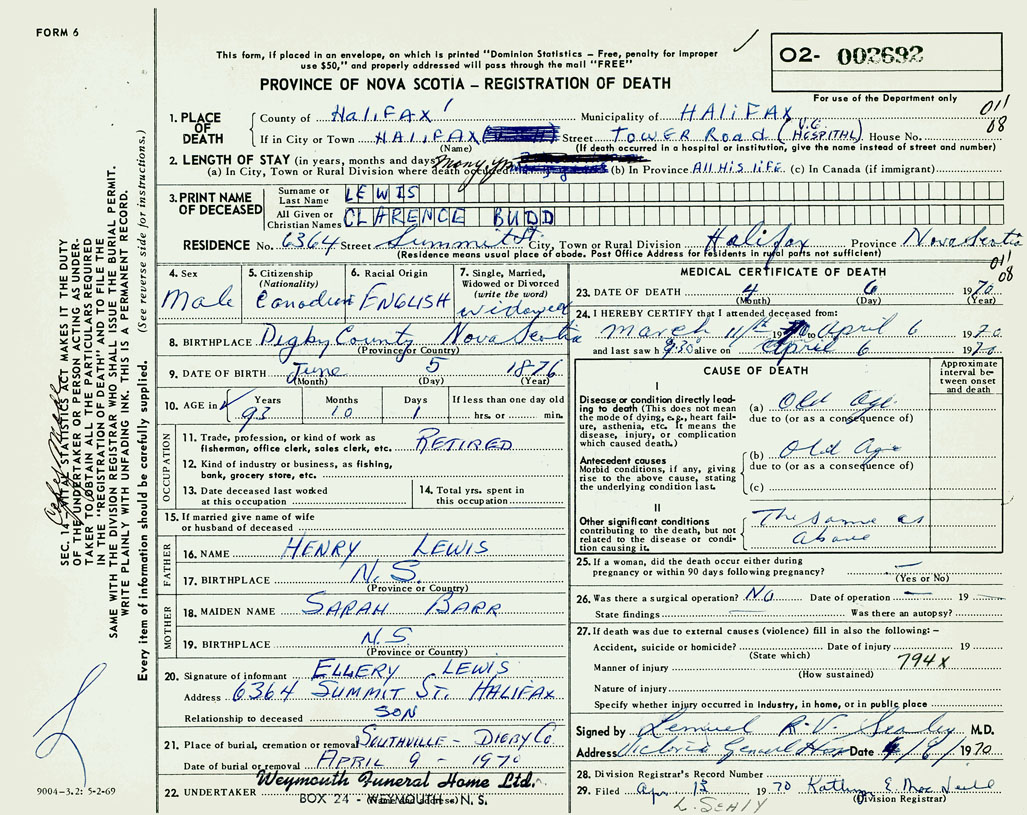 FORM 6
This form, if placed in an envelope, on which is printed "Dominion Statistics – Free, penalty for improper
use $50," and properly addressed will pass through the mail "FREE"
O2- 002692
PROVINCE OF NOVA SCOTIA – REGISTRATION OF DEATH
For use of the Department only
011
08
1. PLACE OF DEATH
County of HALIFAX Municipality of HALIFAX
If in City or Town HALIFAX Street TOWER ROAD (V.G. HOSPITAL) House No.
(Name) (If death occurred in a hospital or institution, give the name instead of street and number)
2. LENGTH OF STAY (in years, months and days)
(a) In City, Town or Rural Division where death occured many yrs (b) In Province All His life (c) In Canada (if immigrant)
3. PRINT NAME OF DECEASED
Surname or Last Name LEWIS
All Given or Christian Names CLARENCE BUDD
RESIDENCE No. 6364 Street Summit St. City, Town or Rural Division Halifax Province Nova Scotia
(Residence means usual place of abode. Post Office Address for residents in rural parts not sufficient)
011
08
4. Sex Male
5. Citizenship (Nationality) Canadian
6. Racial Origin ENGLISH
7. Single, Married, Widowed or Divorced (write the word) widowed
8. BIRTHPLACE Digby County Nova Scotia
(Province or Country)
9. DATE OF BIRTH June 5 1876
(Month) (Day) (Year)
10. AGE in Years 93 Months 10 Days 1 If less than one day old hrs. or min.
OCCUPATION
11. Trade, profession, or kind of work as
fisherman, office clerk, sales clerk, etc. RETIRED
12. Kind of industry or business, as fishing,
bank, grocery store, etc.
13. Date deceased last worked
at this occupation
14. Total yrs. spent in
this occupation
15. If married give name of wife
or husband of deceased
FATHER
16. NAME HENRY LEWIS
17. BIRTHPLACE N.S.
(Province or Country)
MOTHER
18. MAIDEN NAME SARAH BARR
19. BIRTHPLACE N.S
(Province or Country)
20. Signature of informant ELLERY LEWIS
Address 6364 SUMMIT ST. HALIFAX
Relationship to deceased SON
21. Place of burial, cremation or removal SOUTHVILLE - DIGBY Co
Date of burial or removal APRIL 9 - 1970
22. UNDERTAKER Weymouth Funeral Home Ltd.
BOX 24 - WEYMOUTH N. S.
MEDICAL CERTIFICATE OF DEATH
23. DATE OF DEATH 4 6 1970
(Month) (Day) (Year)
24. I HEREBY CERTIFY that I attended deceased from:
March 11th 1970 to April 6 1970
and last saw h alive on April 6 1970
CAUSE OF DEATH
Approximate interval between onset and death
I
Disease or condition directly leading
to death (This does not mean
the mode of dying, e.g., heart failure,
asthenia, etc. It means the
disease, injury, or complication
which caused death.)
(a) Old Age
due to (or as a consequence of)
Antecedent causes
Morbid conditions, if any, giving
rise to the above cause, stating
the underlying condition last.
(b) Old Age
due to (or as a consequence of)
(c)
II
Other significant conditions
contributing to the death, but not
related to the disease or condition
causing it.
The same as
above
25. If a woman, did the death occur either during
pregnancy or within 90 days following pregnancy? —
(Yes or No)
26. Was there a surgical operation? No Date of operation — 19
State findings — Was there an autopsy?
27. If death was due to external causes (violence) fill in also the following: –
Accident, suicide or homicide? Date of injury 19
(State which)
794x
Manner of injury
(How sustained)
Nature of injury
Specify whether injury occurred in industry, in home, or in public place
Signed by Lemuel R.V. Sealy M.D.
Address Victoria General Hosp Date 4/8/1970
28. Division Registrar's Record Number
29. Filed Apr 13 1970 Kathryn E. MacNeill
(Division Registrar)
L. SEALY
SEC. 14 – VITAL STATISTICS ACT MAKES IT THE DUTY
OF THE UNDERTAKER OR PERSON ACTING AS UNDERTAKER
TO OBTAIN ALL THE PARTICULARS REQUIRED
IN THE "REGISTRATION OF DEATH" AND TO FILE THE
SAME WITH THE DIVISION REGISTRAR WHO SHALL ISSUE THE BURIAL PERMIT.
WRITE PLAINLY WITH UNFADING INK. THIS IS A PERMANENT RECORD.
Every item of information should be carefully supplied. (See reverse side for instructions.)
9004-3.2: 5-2-69